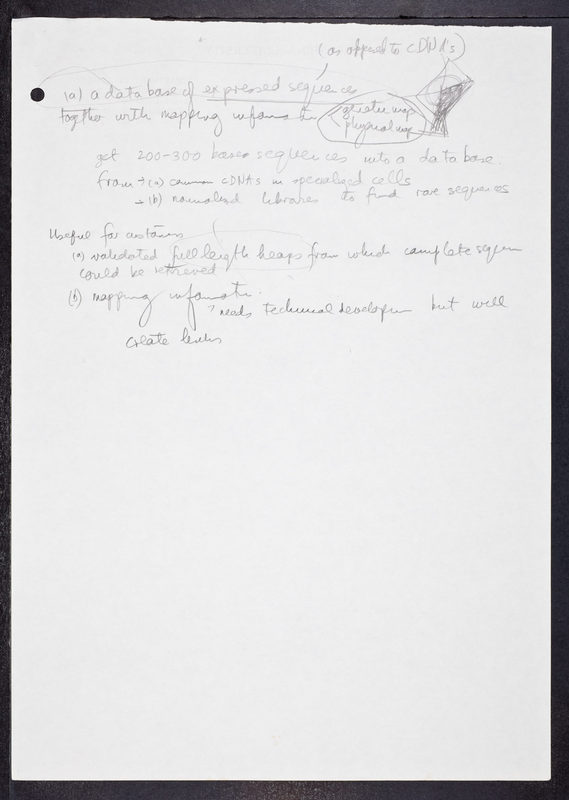 (as opposed to cDNA's)
(a) a data base of expressed sequences
together with mapping informatn
genetic map
physical map
get 200-300 bases sequences into a data base.
from → (a) common cDNAs in specialized cells
→ (b) normalized libraries to find rare sequences
Useful for customers
(a) validated full length from which complete sequen
could be retrieved
(b) mapping informatn.
→ needs technical developm but will
create